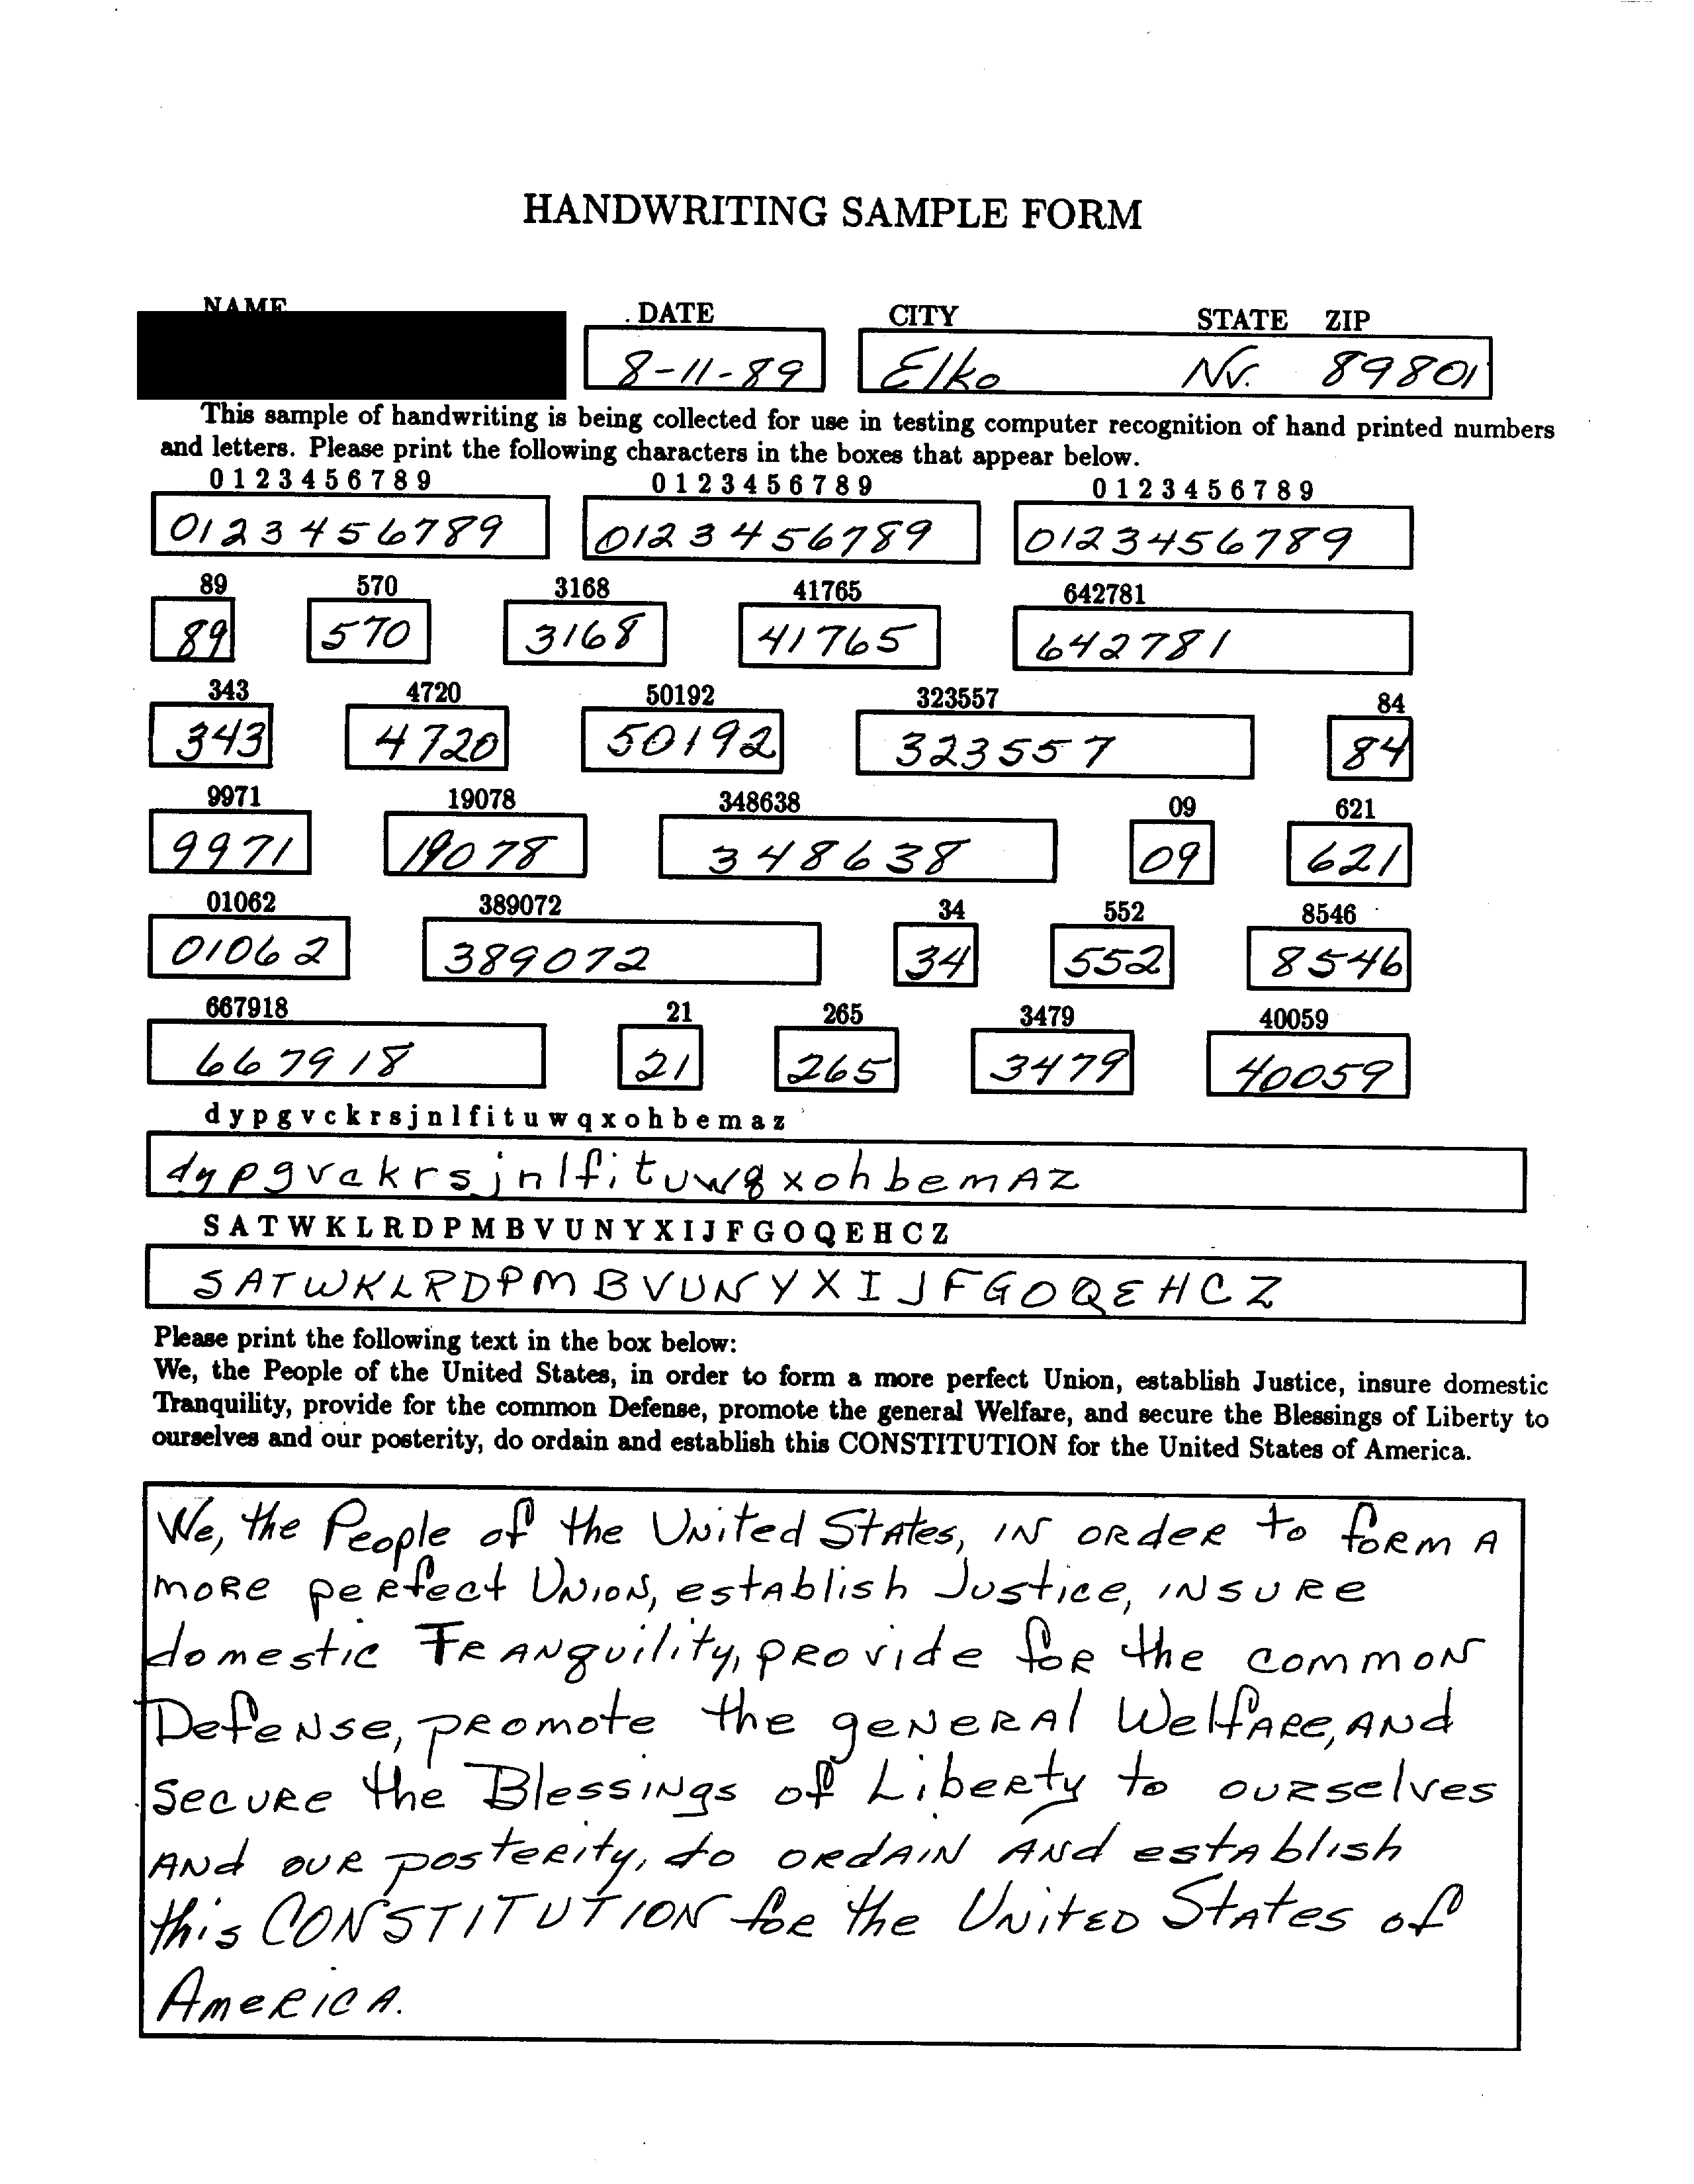 HANDWRITING SAMPLE FORM
NAME DATE CITY STATE ZIP
8-11-89 Elko Nv. 89801
This sample of handwriting is being collected for use in testing computer recognition of hand printed numbers
and letters. Please print the following characters in the boxes that appear below.
0 1 2 3 4 5 6 7 8 9 0 1 2 3 4 5 6 7 8 9 0 1 2 3 4 5 6 7 8 9
0123456789 0123456789 0123456789
89 570 3168 41765 642781
89 570 3168 41765 642781
343 4720 50192 323557 84
343 4720 50192 323557 84
9971 19078 348638 09 621
9971 19078 348638 09 621
01062 389072 34 552 8546
01062 389072 34 552 8546
667918 21 265 3479 40059
667918 21 265 3479 40059
d y p g v c k r s j n l f i t u w q x o h b e m a z
dypgvckrsjnlfituwqxohbemAz
S A T W K L R D P M B V U N Y X I J F G O Q E H C Z
SATWKLRDPMBVUNYXIJFGOQEHCZ
Please print the following text in the box below:
We, the People of the United States, in order to form a more perfect Union, establish Justice, insure domestic
Tranquility, provide for the common Defense, promote the general Welfare, and secure the Blessings of Liberty to
ourselves and our posterity, do ordain and establish this CONSTITUTION for the United States of America.
We, the People of the UNited StAtes, IN ORdeR to foRm A
moRe peRfect UNIoN, estAblish Justice, INSURe
domestic TRANquility, pRovide foR the commoN
DefeNse, pRomote the geNeRAl WelfARe, ANd
secuRe the BlessiNgs of LibeRty to ouRselves
ANd ouR posteRity, do oRdAIN ANd estAblish
this CONSTITUTION foR the UNitED StAtes of
AmeRICA.